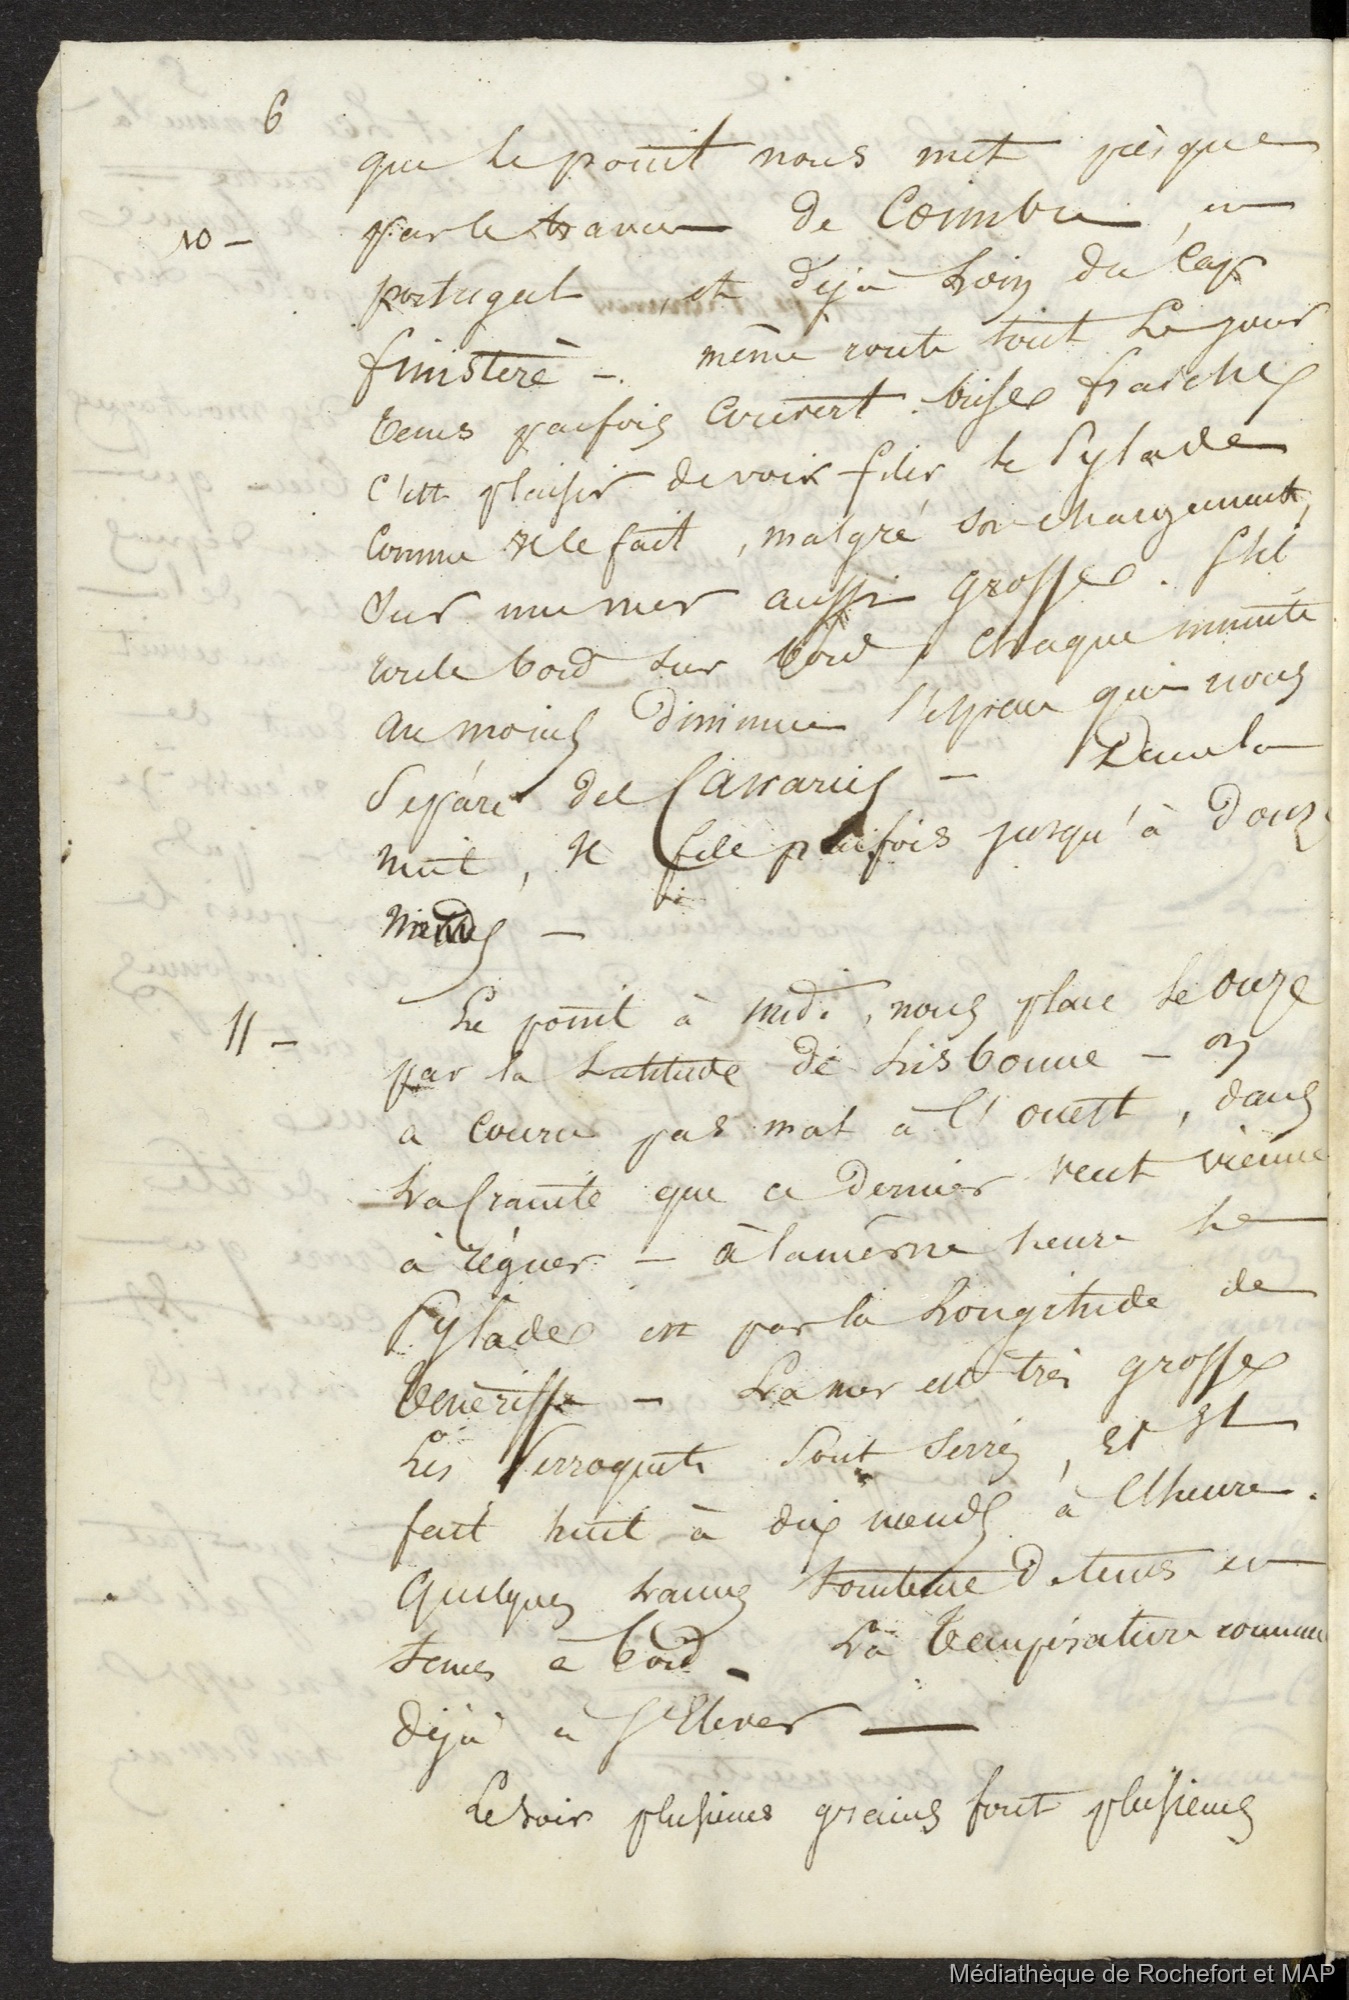 6
que le point nous met presque
10 - par le travers de Coimbre, en
portugal, et déjà Loin du Cap
finistère -. même route tout Le jour
tems parfois Couvert. brises fraiches
C'est plaisir de voir filer le Pylade
Comme il le fait, malgré son chargement,
Sur une mer aussi grosse. S'il
roule bord sur bord, Chaque minute
au moins Diminue l'espace qui nous
Sépare des Canaries - Dans la
nuit, il file parfois jusqu'à Douze
nœuds -
11 - Le point à midi, nous place le onze
par la Latitude de Lisbonne - on
a couru pas mal à l'ouest, dans
La Crainte que ce dernier vent vienne
à régner - à la même heure Le
Pylade est par la Longitude de
Ténériffe - La mer est très grosse
Les Perroquets Sont serrés, et Il
fait huit à dix nœuds à l'heure.
Quelques Lames tombent de tems en
tems à bord - La température commence
Déjà à S'Elever —
Le soir plusieurs grains font plusieurs
Médiathèque de Rochefort et MAP